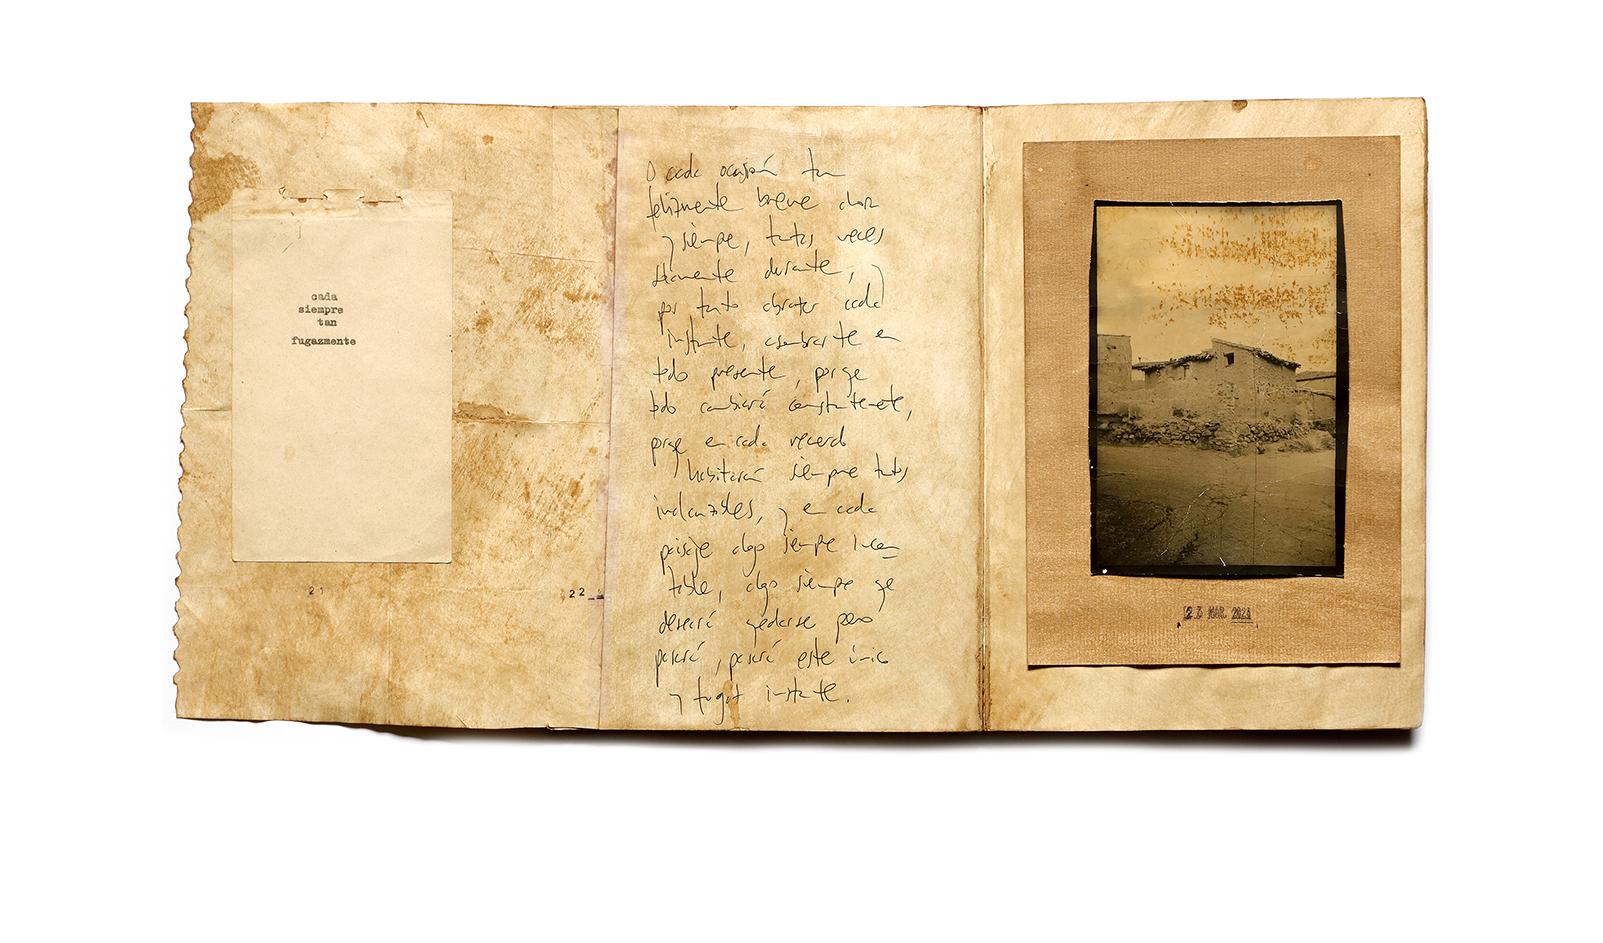 cada
siempre
tan
fugazmente
21
22
O cada ocasión tan
felizmente breve ahora
y siempre, tantas veces
solamente durante, y
por tanto abrazar cada
instante, asombrarte en
todo presente, porque
todo cambiará constantemente,
porque en cada recuerdo
habitarán siempre tantos
inalcanzables, y en cada
paisaje algo siempre incon
table, algo siempre que
deseará quedarse pero
pasará, pasará este único
y fugaz instante.
23 MAR 2023